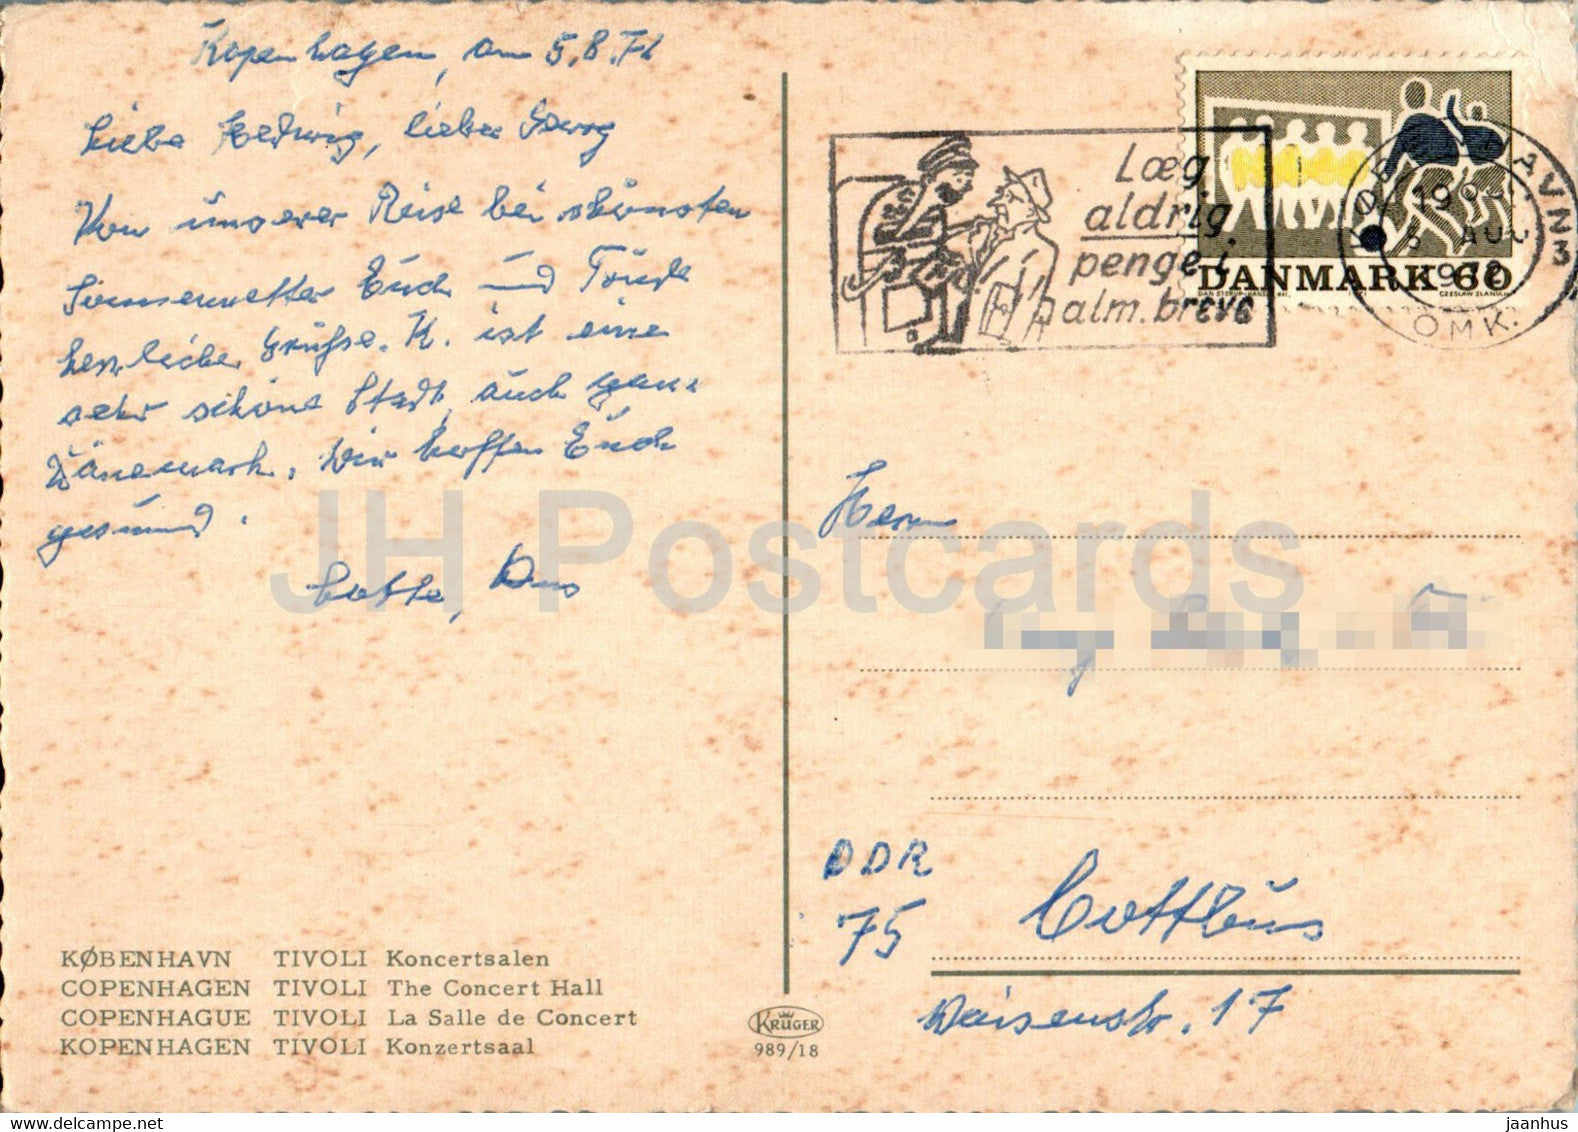 Kopenhagen, am 5.8.72
Liebe Hedwig, lieber Georg
Von unserer Reise bei schönsten
Sommerwetter Euch und Trude
herzliche Grüße. K. ist eine
sehr schöne Stadt, auch ganz
Dänemark. Wir hoffen Euch
gesund.
Lotte,
KØBENHAVN TIVOLI Koncertsalen
COPENHAGEN TIVOLI The Concert Hall
COPENHAGUE TIVOLI La Salle de Concert
KOPENHAGEN TIVOLI Konzertsaal
KRÜGER
989/18
Læg
aldrig
penge i
alm. breve
KØBENHAVN 3
1972
OMK.
DANMARK 60
CZESLAW SLANIA
Herrn
DDR
75 Cottbus
Waisenstr. 17
JH Postcards
www.delcampe.net
jaanhus